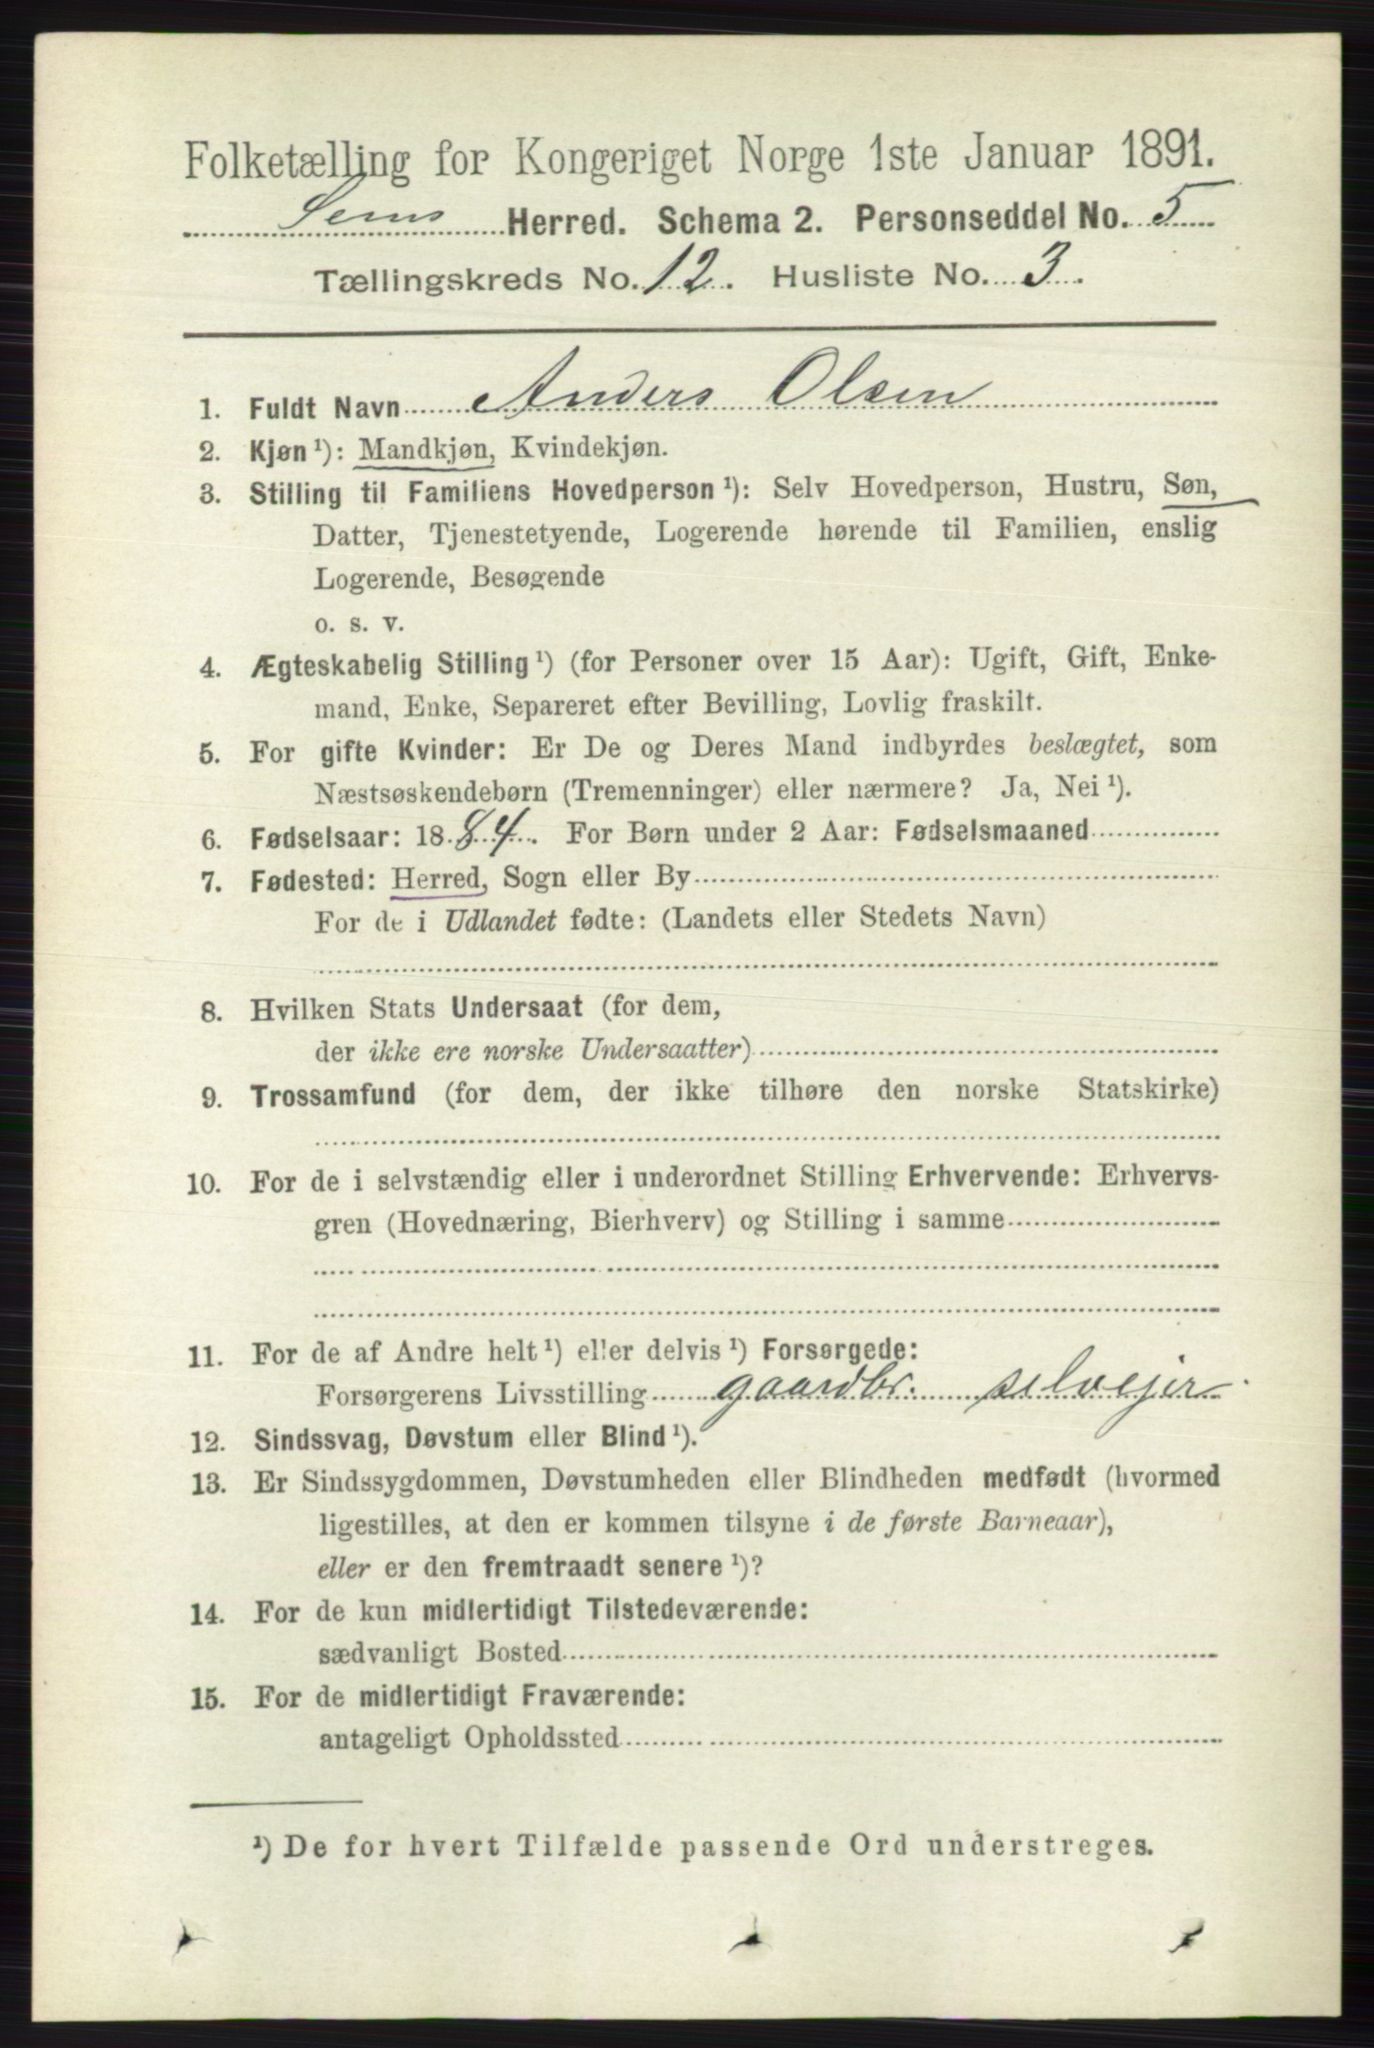 Folketælling for Kongeriget Norge 1ste Januar 1891.
Sems Herred. Schema 2. Personseddel No. 5
Tællingskreds No. 12. Husliste No. 3.
1. Fuldt Navn Anders Olsen
2. Kjøn ¹): Mandkjøn, Kvindekjøn.
3. Stilling til Familiens Hovedperson ¹): Selv Hovedperson, Hustru, Søn,
Datter, Tjenestetyende, Logerende hørende til Familien, enslig
Logerende, Besøgende
o. s. v.
4. Ægteskabelig Stilling ¹) (for Personer over 15 Aar): Ugift, Gift, Enke-
mand, Enke, Separeret efter Bevilling, Lovlig fraskilt.
5. For gifte Kvinder: Er De og Deres Mand indbyrdes beslægtet, som
Næstsøskendebørn (Tremenninger) eller nærmere? Ja, Nei ¹).
6. Fødselsaar: 1884. For Børn under 2 Aar: Fødselsmaaned
7. Fødested: Herred, Sogn eller By
For de i Udlandet fødte: (Landets eller Stedets Navn)
8. Hvilken Stats Undersaat (for dem,
der ikke ere norske Undersaatter)
9. Trossamfund (for dem, der ikke tilhøre den norske Statskirke)
10. For de i selvstændig eller i underordnet Stilling Erhvervende: Erhvervs-
gren (Hovednæring, Bierhverv) og Stilling i samme
11. For de af Andre helt ¹) eller delvis ¹) Forsørgede:
Forsørgerens Livsstilling gaardbr. selvejer
12. Sindssvag, Døvstum eller Blind ¹).
13. Er Sindssygdommen, Døvstumheden eller Blindheden medfødt (hvormed
ligestilles, at den er kommen tilsyne i de første Barneaar),
eller er den fremtraadt senere ¹)?
14. For de kun midlertidigt Tilstedeværende:
sædvanligt Bosted
15. For de midlertidigt Fraværende:
antageligt Opholdssted
¹) De for hvert Tilfælde passende Ord understreges.